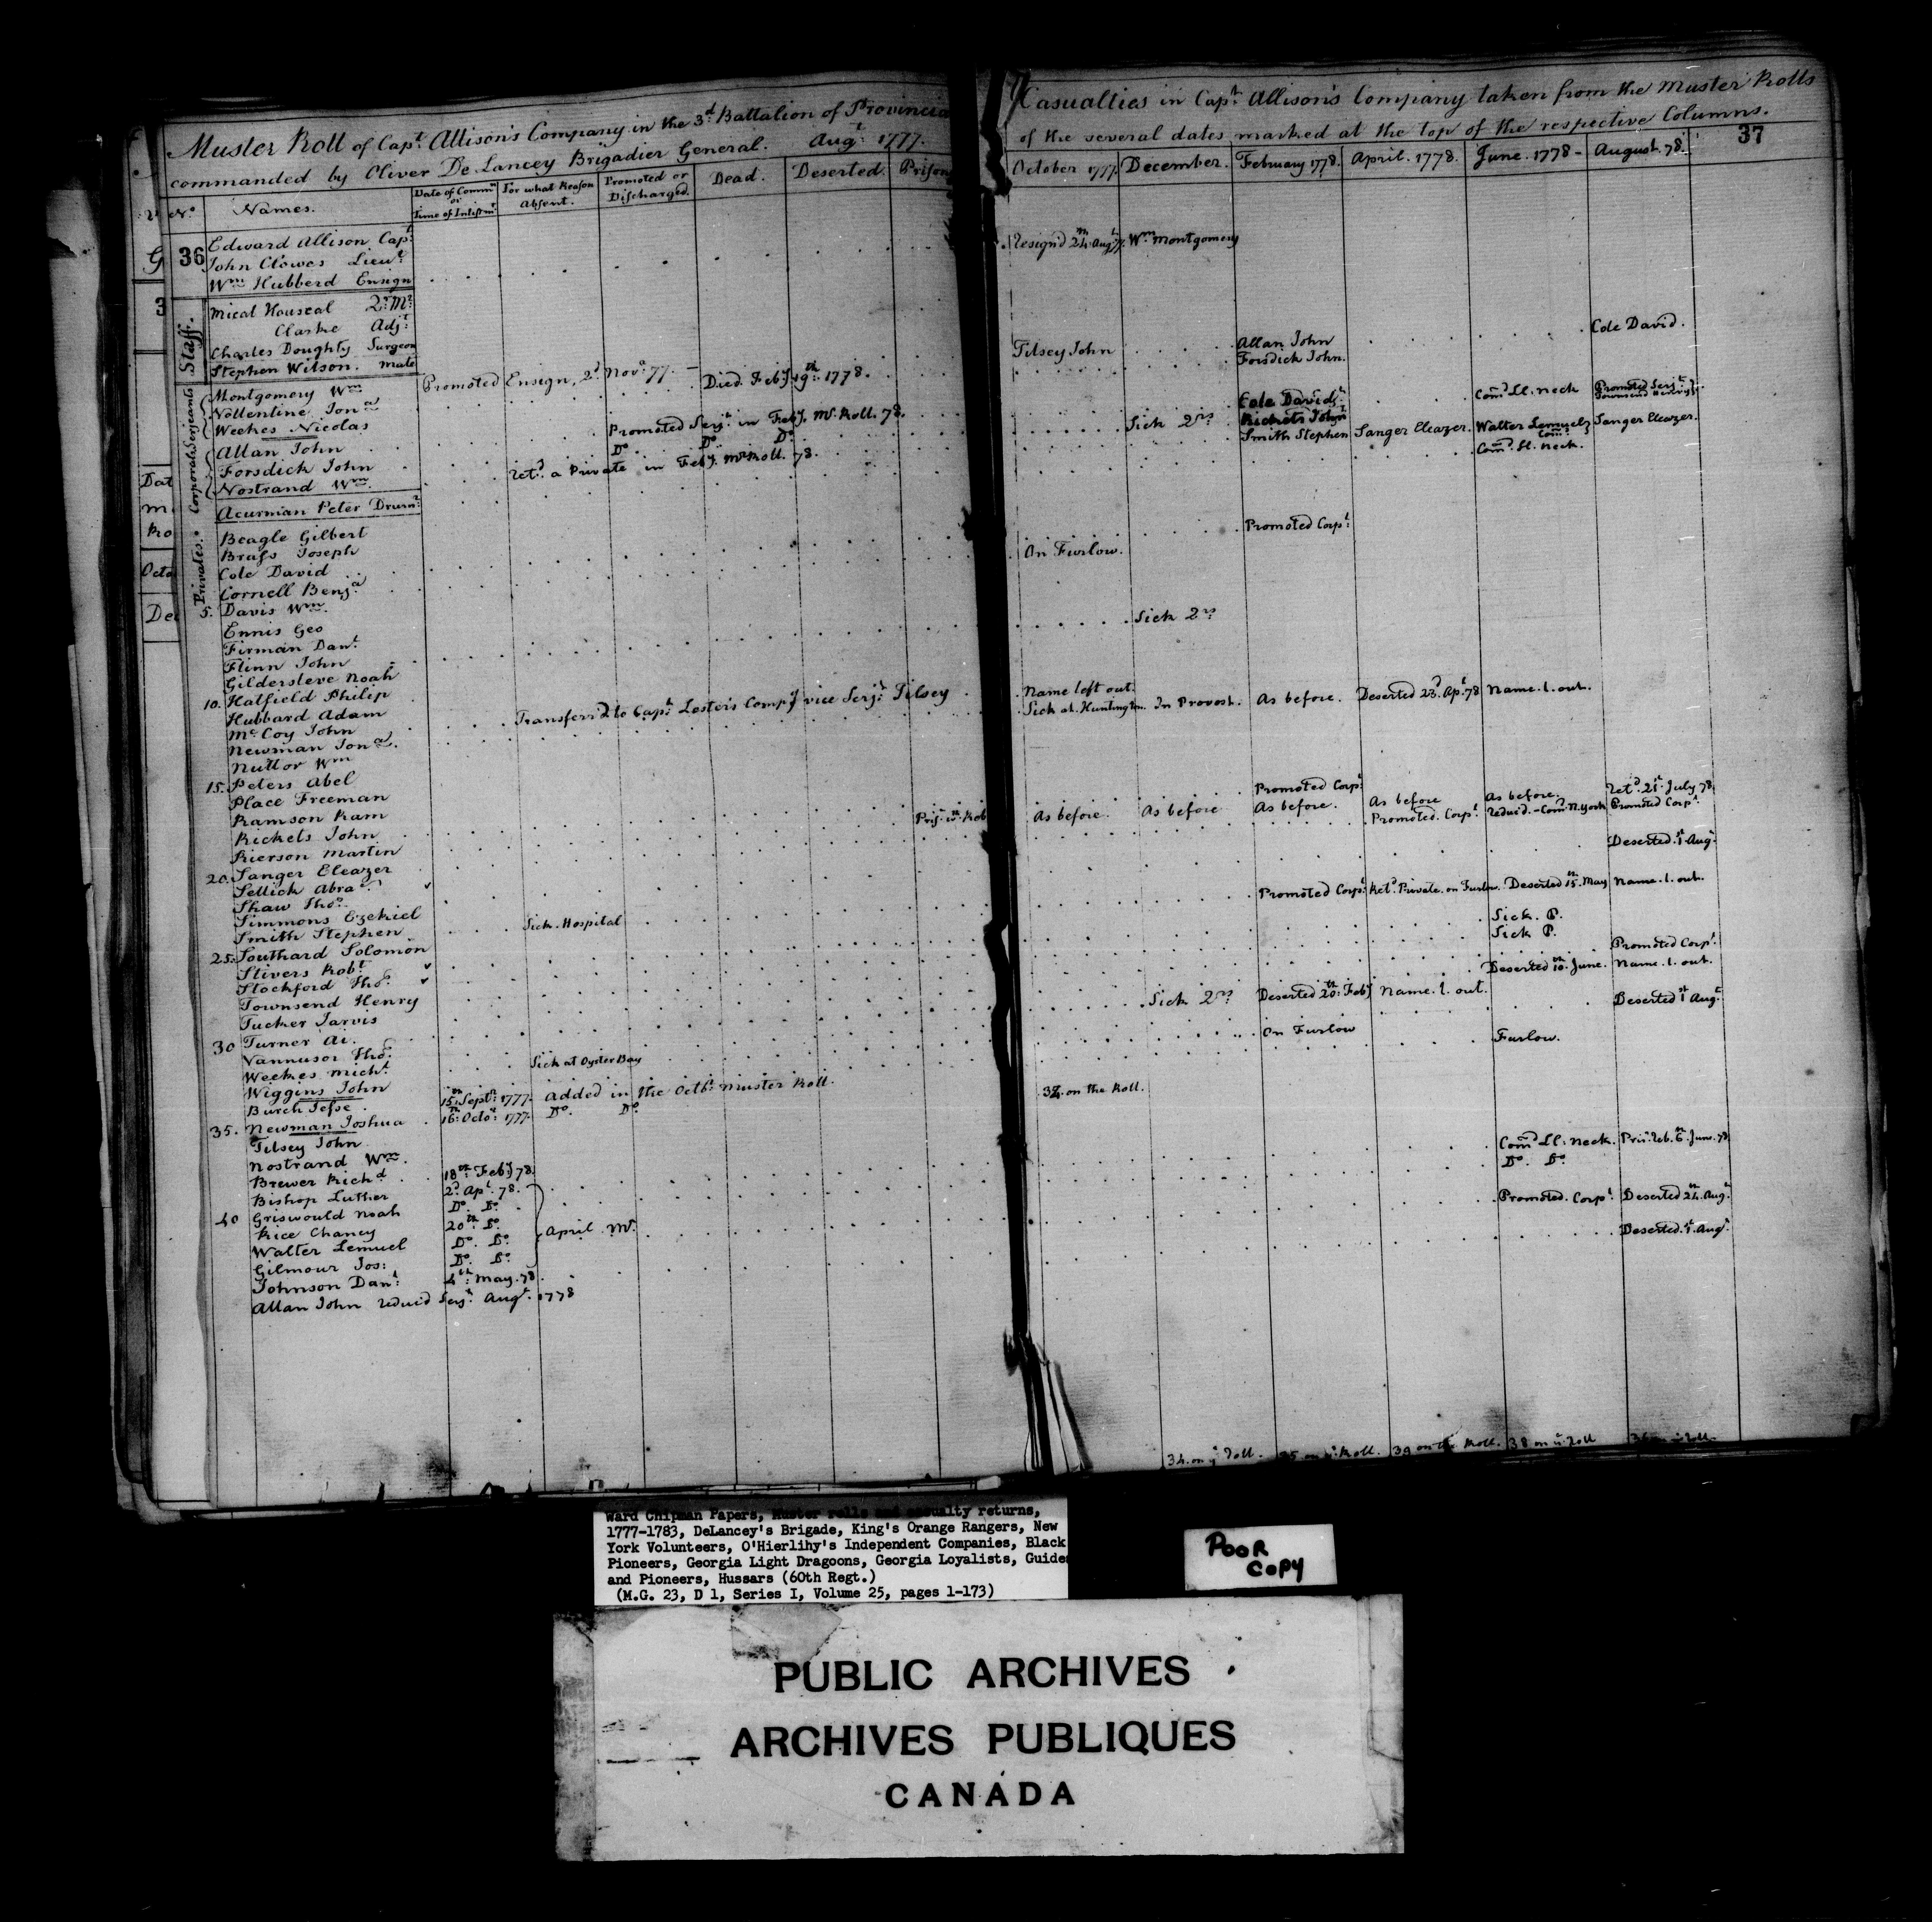 Muster Roll of Capt Allison's Company in the 3d Battalion of Provincia
commanded by Oliver De Lancey Brigadier General. Augt 1777.
No Names. Date of Commn or Time of Inlistmt For what Reason Absent. Promoted or Discharged. Dead. Deserted. Prison
36
Edward Allison Capt
John Clowes Lieut
Wm Hubberd Ensign
Staff.
Micał Houseal Qr Mr
Clarke Adjt
Charles Doughty Surgeon
Stephen Wilson. Mate
Serjeants
Montgomery Wm Promoted Ensign, 2d Novr 77.
Nollentine Jona Died Feby 19th 1778.
Weekes Nicolas
Corporals
Allan John Promoted Serjt in Feby. Mr Roll. 78.
Forsdick John Do Do Do
Nostrand Wm retd a Private in Feby. Mr Roll. 78.
Acurman Peter Drumr
Privates.
Beagle Gilbert
Brass Joseph
Cole David
Cornell Benja
5. Davis Wm
Ennis Geo
Firman Danl
Flinn John
Gildersleve Noah
10. Hatfield Philip
Hubbard Adam Transferrd to Capt Lester's Compy vice Serjt Tilsey
McCoy John
Newman Jona.
Nuttor Wm
15. Peters Abel
Place Freeman
Ramson Ram Pris. wth Reb
Rickets John
Rierson Martin
20. Sanger Eleazer
Sellick Abra
Shaw Thos
Simmons Ezekiel
Smith Stephen Sick. Hospital
25. Southard Solomon
Stivers Robt
Stockford Thos
Townsend Henry
Tucker Jarvis
30 Turner Ai.
Vannusor Thos
Weekes Michl
Wiggins John Sick at Oyster Bay
Burch Jesse 15th Septr 1777. added in the Octbr Muster Roll.
35. Newman Joshua 16th Octor 1777. Do. Do
Tilsey John
Nostrand Wm.
Brewer Richd 18th Feby 78.
Bishop Luther 2d Apl. 78.
40 Griswould Noah Do Do
Rice Chaney 20th Do April Mr.
Walter Lemuel Do. Do
Gilmour Jos: Do Do
Johnson Danl 4th May. 78.
Allan John reducd Serjt Augt. 1778
Casualties in Capt Allison's Company taken from the Muster Rolls
of the several dates marked at the top of the respective Columns.
37
October 1777. December. February 1778. April. 1778. June. 1778 - August. 78.
Resignd 24th Augt 77. Wm Montgomery
Cole David.
Tilsey John Allan John
Forsdick John.
Cole David Comd Ll. Neck Promoted Serjt
Townsend Henry
Sick 2rs Rickets John
Smith Stephen Sanger Eleazer. Walter Lemuel Sanger Eleazer.
Comd Ll. Neck.
Promoted Corpl
On Furlow.
Sick 2rs
Name left out.
Sick at Huntington. In Provost. As before. Deserted 23d Apl 78 Name. l. out.
Promoted Corpl
As before. As before As before. As before As before. Retd 21st July 78
Promoted. Corpl reducd. - Comd N. York Promoted Corpl
Deserted. 1st Augt
Promoted Corpl Retd Private. on Furlow. Deserted 15th May Name. l. out.
Sick. P.
Sick P.
Promoted Corpl.
Deserted 10th June. Name. l. out.
Sick 2rs Deserted 20th Feby Name. l. out.
Deserted 1st Augt
On Furlow Furlow.
34. on the Roll.
Comd Ll. Neck. Pris. Reb. 6th June. 78
Do. Do
Promoted. Corpl Deserted 24th Augt
Deserted. 1st Augt
34. on ye Roll. 35 on ye Roll. 39 on the Roll. 38 on ye Roll 36 on ye Roll.
G
3
Dat
Ro
Octo
Dec
Ward Chipman Papers, Muster rolls and casualty returns,
1777-1783, DeLancey's Brigade, King's Orange Rangers, New
York Volunteers, O'Hierlihy's Independent Companies, Black
Pioneers, Georgia Light Dragoons, Georgia Loyalists, Guides
and Pioneers, Hussars (60th Regt.)
(M.G. 23, D 1, Series I, Volume 25, pages 1-173)
POOR
COPY
PUBLIC ARCHIVES
ARCHIVES PUBLIQUES
CANADA